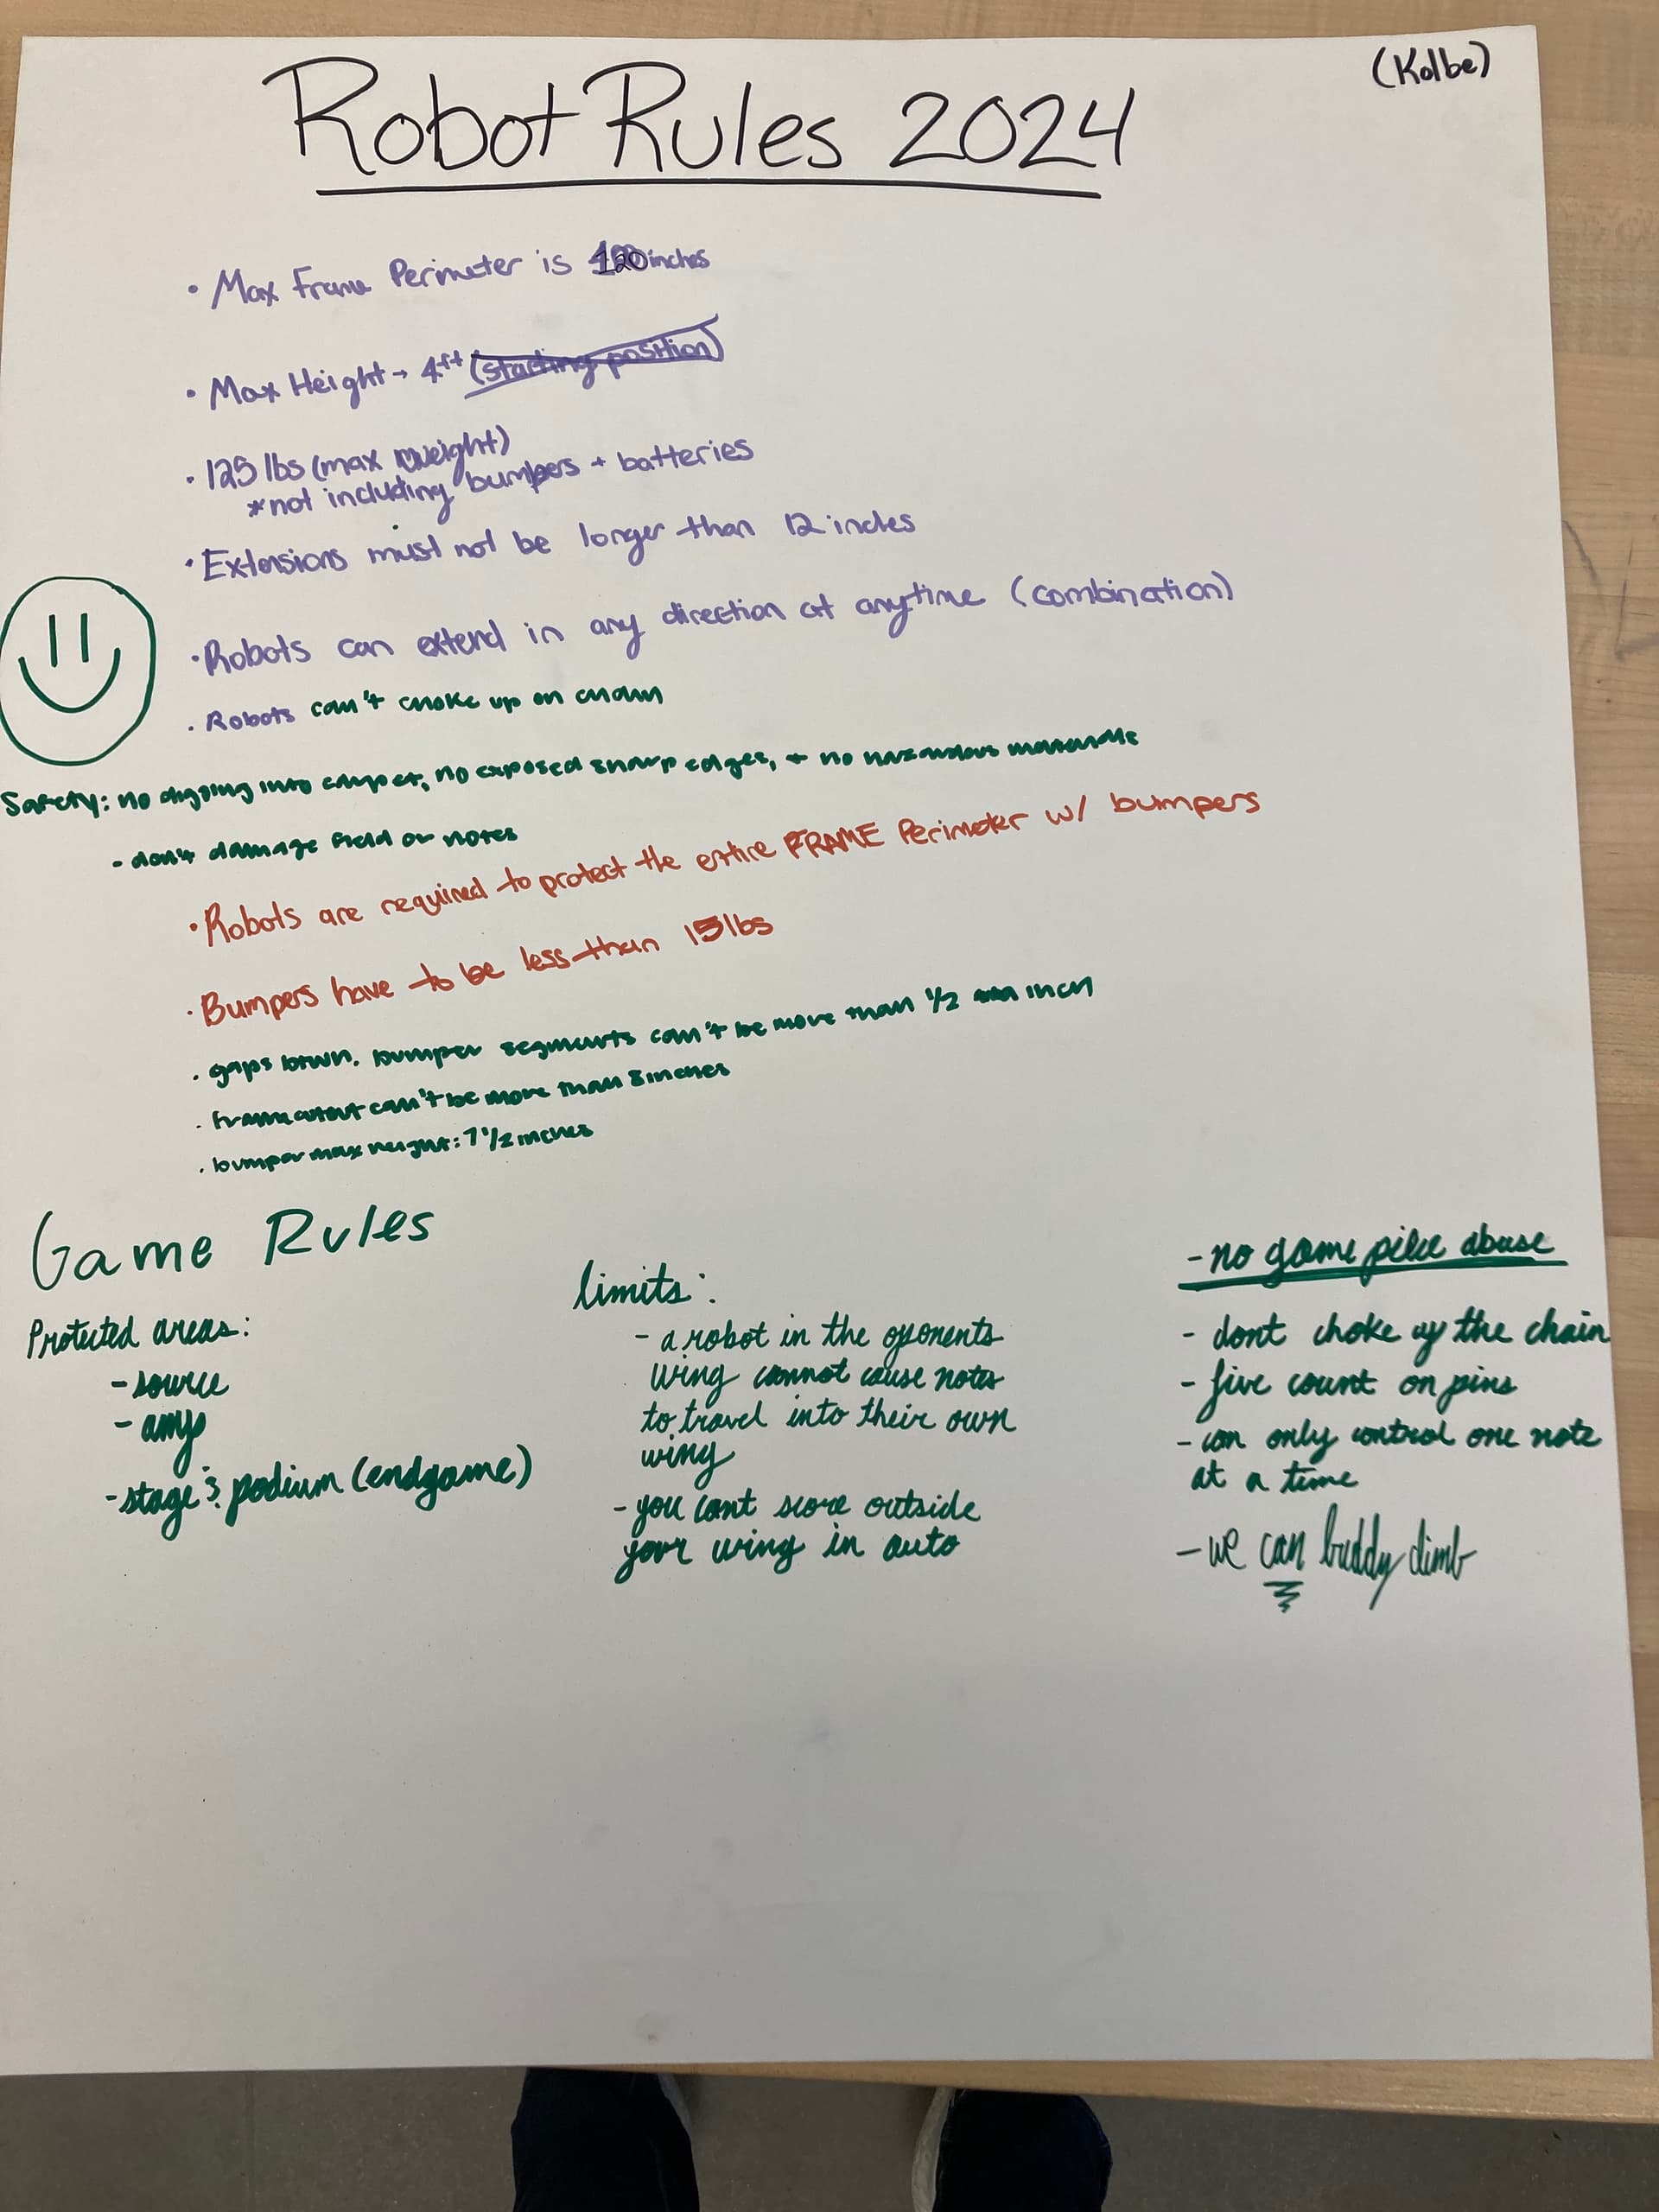 (Kolbe)
Robot Rules 2024
• Max Frame Perimeter is 120 inches
• Max Height → 4ft (starting position)
• 125 lbs (max weight)
*not including bumpers + batteries
• Extensions must not be longer than 12 inches
• Robots can extend in any direction at anytime (combination)
• Robots can't choke up on chain
Safety: no digging into carpet, no exposed sharp edges, + no hazardous materials
- don't damage field or notes
• Robots are required to protect the entire FRAME Perimeter w/ bumpers
• Bumpers have to be less than 15 lbs
• gaps btwn. bumper segments can't be more than 1/2 inch
• frame cutout can't be more than 8 inches
• bumper max height: 7 1/2 inches
Game Rules
Protected areas:
- source
- amp
- stage & podium (endgame)
limits:
- a robot in the oponents
wing cannot cause notes
to travel into their own
wing
- you cant score outside
your wing in auto
- no game piece abuse
- dont choke up the chain
- five count on pins
- can only control one note
at a time
- we can buddy climb